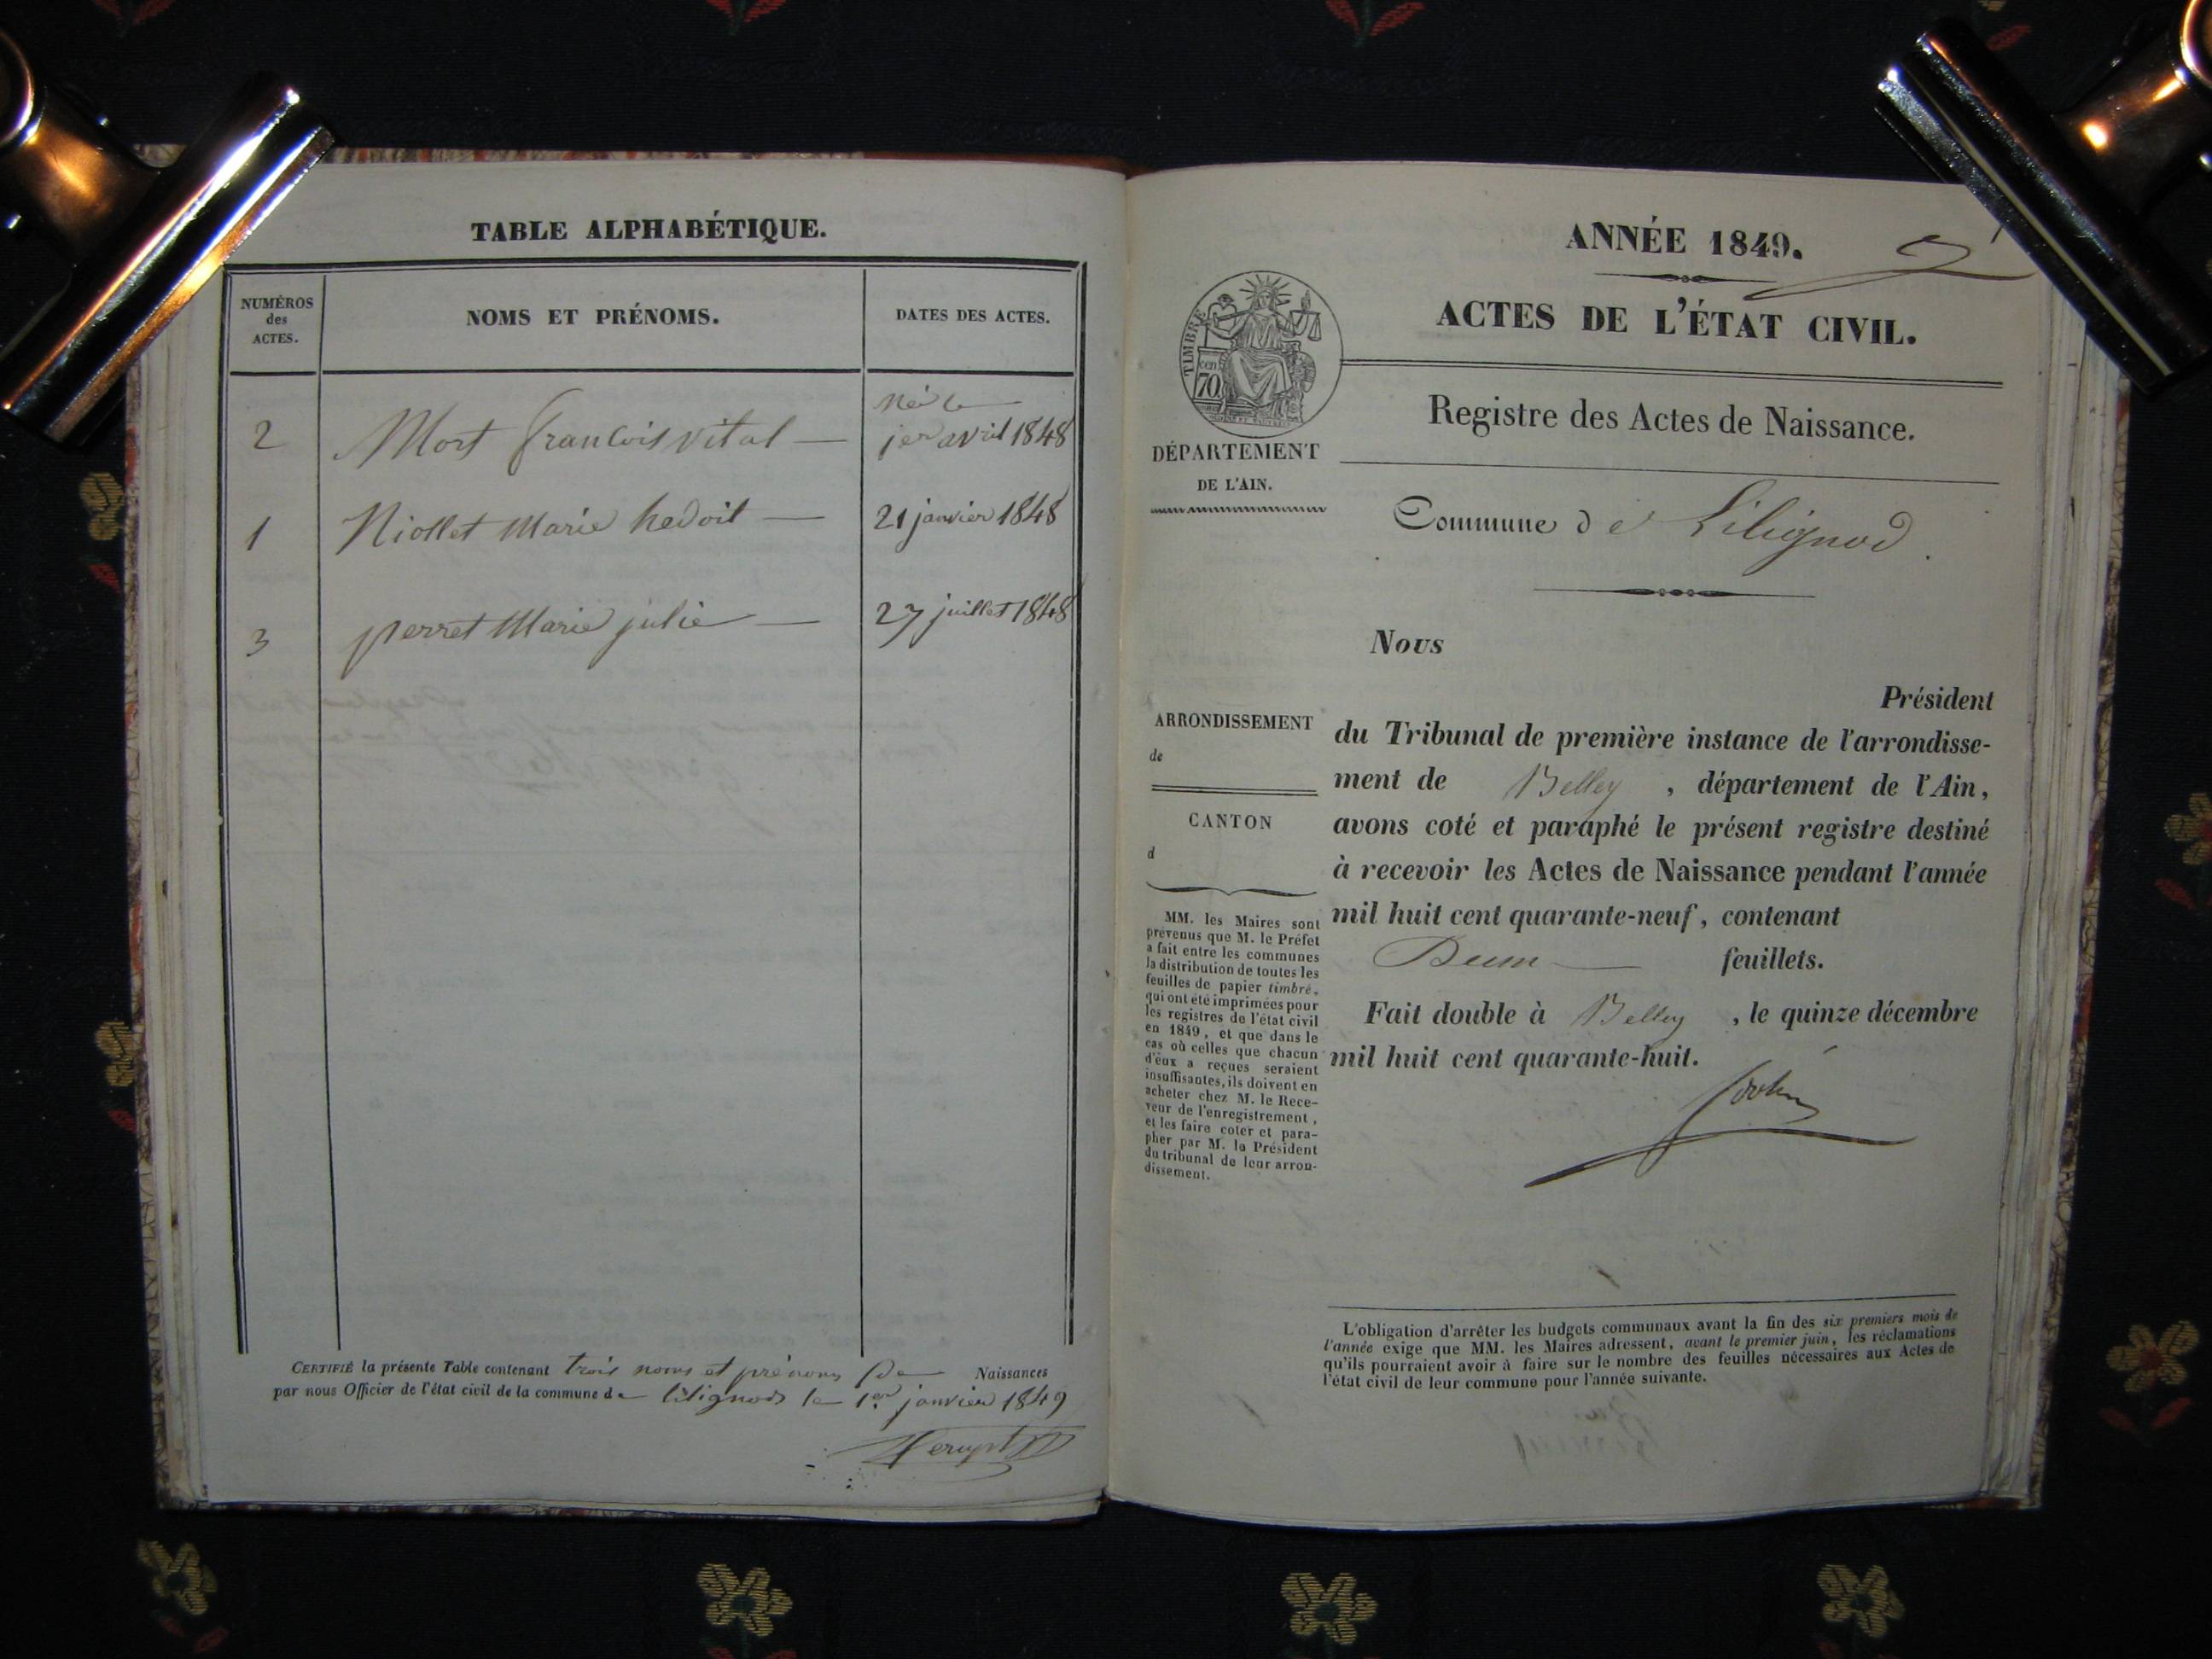 TABLE ALPHABÉTIQUE.
NUMÉROS
des
ACTES.
NOMS ET PRÉNOMS.
DATES DES ACTES.
2 Mort francois vital — Né le
jer avril 1848
1 Niollet Marie hedoit — 21 janvier 1848
3 perret Marie julie — 27 juillet 1848
CERTIFIÉ la présente Table contenant trois noms et prénoms De Naissances
par nous Officier de l'état civil de la commune de lilignod le 1er janvier 1849
ANNÉE 1849.
ACTES DE L'ÉTAT CIVIL.
TIMBRE
70
cen
Registre des Actes de Naissance.
DÉPARTEMENT
DE L'AIN.
Commune de Lilignod.
Nous
Président
du Tribunal de première instance de l'arrondisse-
ment de Belley, département de l'Ain,
avons coté et paraphé le présent registre destiné
à recevoir les Actes de Naissance pendant l'année
mil huit cent quarante-neuf, contenant
feuillets.
Fait double à Belley, le quinze décembre
mil huit cent quarante-huit.
ARRONDISSEMENT
de
CANTON
d
MM. les Maires sont
prévenus que M. le Préfet
a fait entre les communes
la distribution de toutes les
feuilles de papier timbré,
qui ont été imprimées pour
les registres de l'état civil
en 1849, et que dans le
cas où celles que chacun
d'eux a reçues seraient
insuffisantes, ils doivent en
acheter chez M. le Rece-
veur de l'enregistrement,
et les faire coter et para-
pher par M. le Président
du tribunal de leur arron-
dissement.
L'obligation d'arrêter les budgets communaux avant la fin des six premiers mois de
l'année exige que MM. les Maires adressent, avant le premier juin, les réclamations
qu'ils pourraient avoir à faire sur le nombre des feuilles nécessaires aux Actes de
l'état civil de leur commune pour l'année suivante.